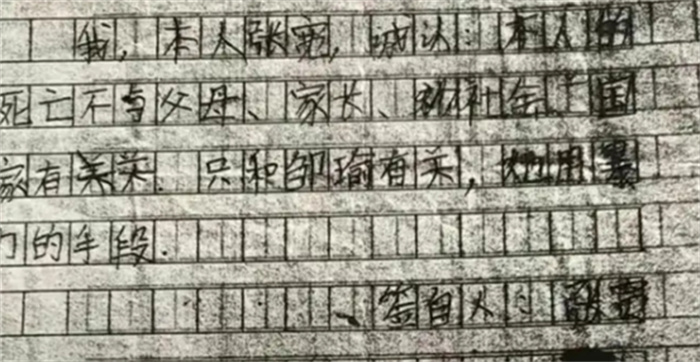 我,本人张宽,诚认:本人的
死亡不与父母、家长、和社会、国
家有关关.只和邹瑜有关,她用暴
力的手段.
签自人:张宽